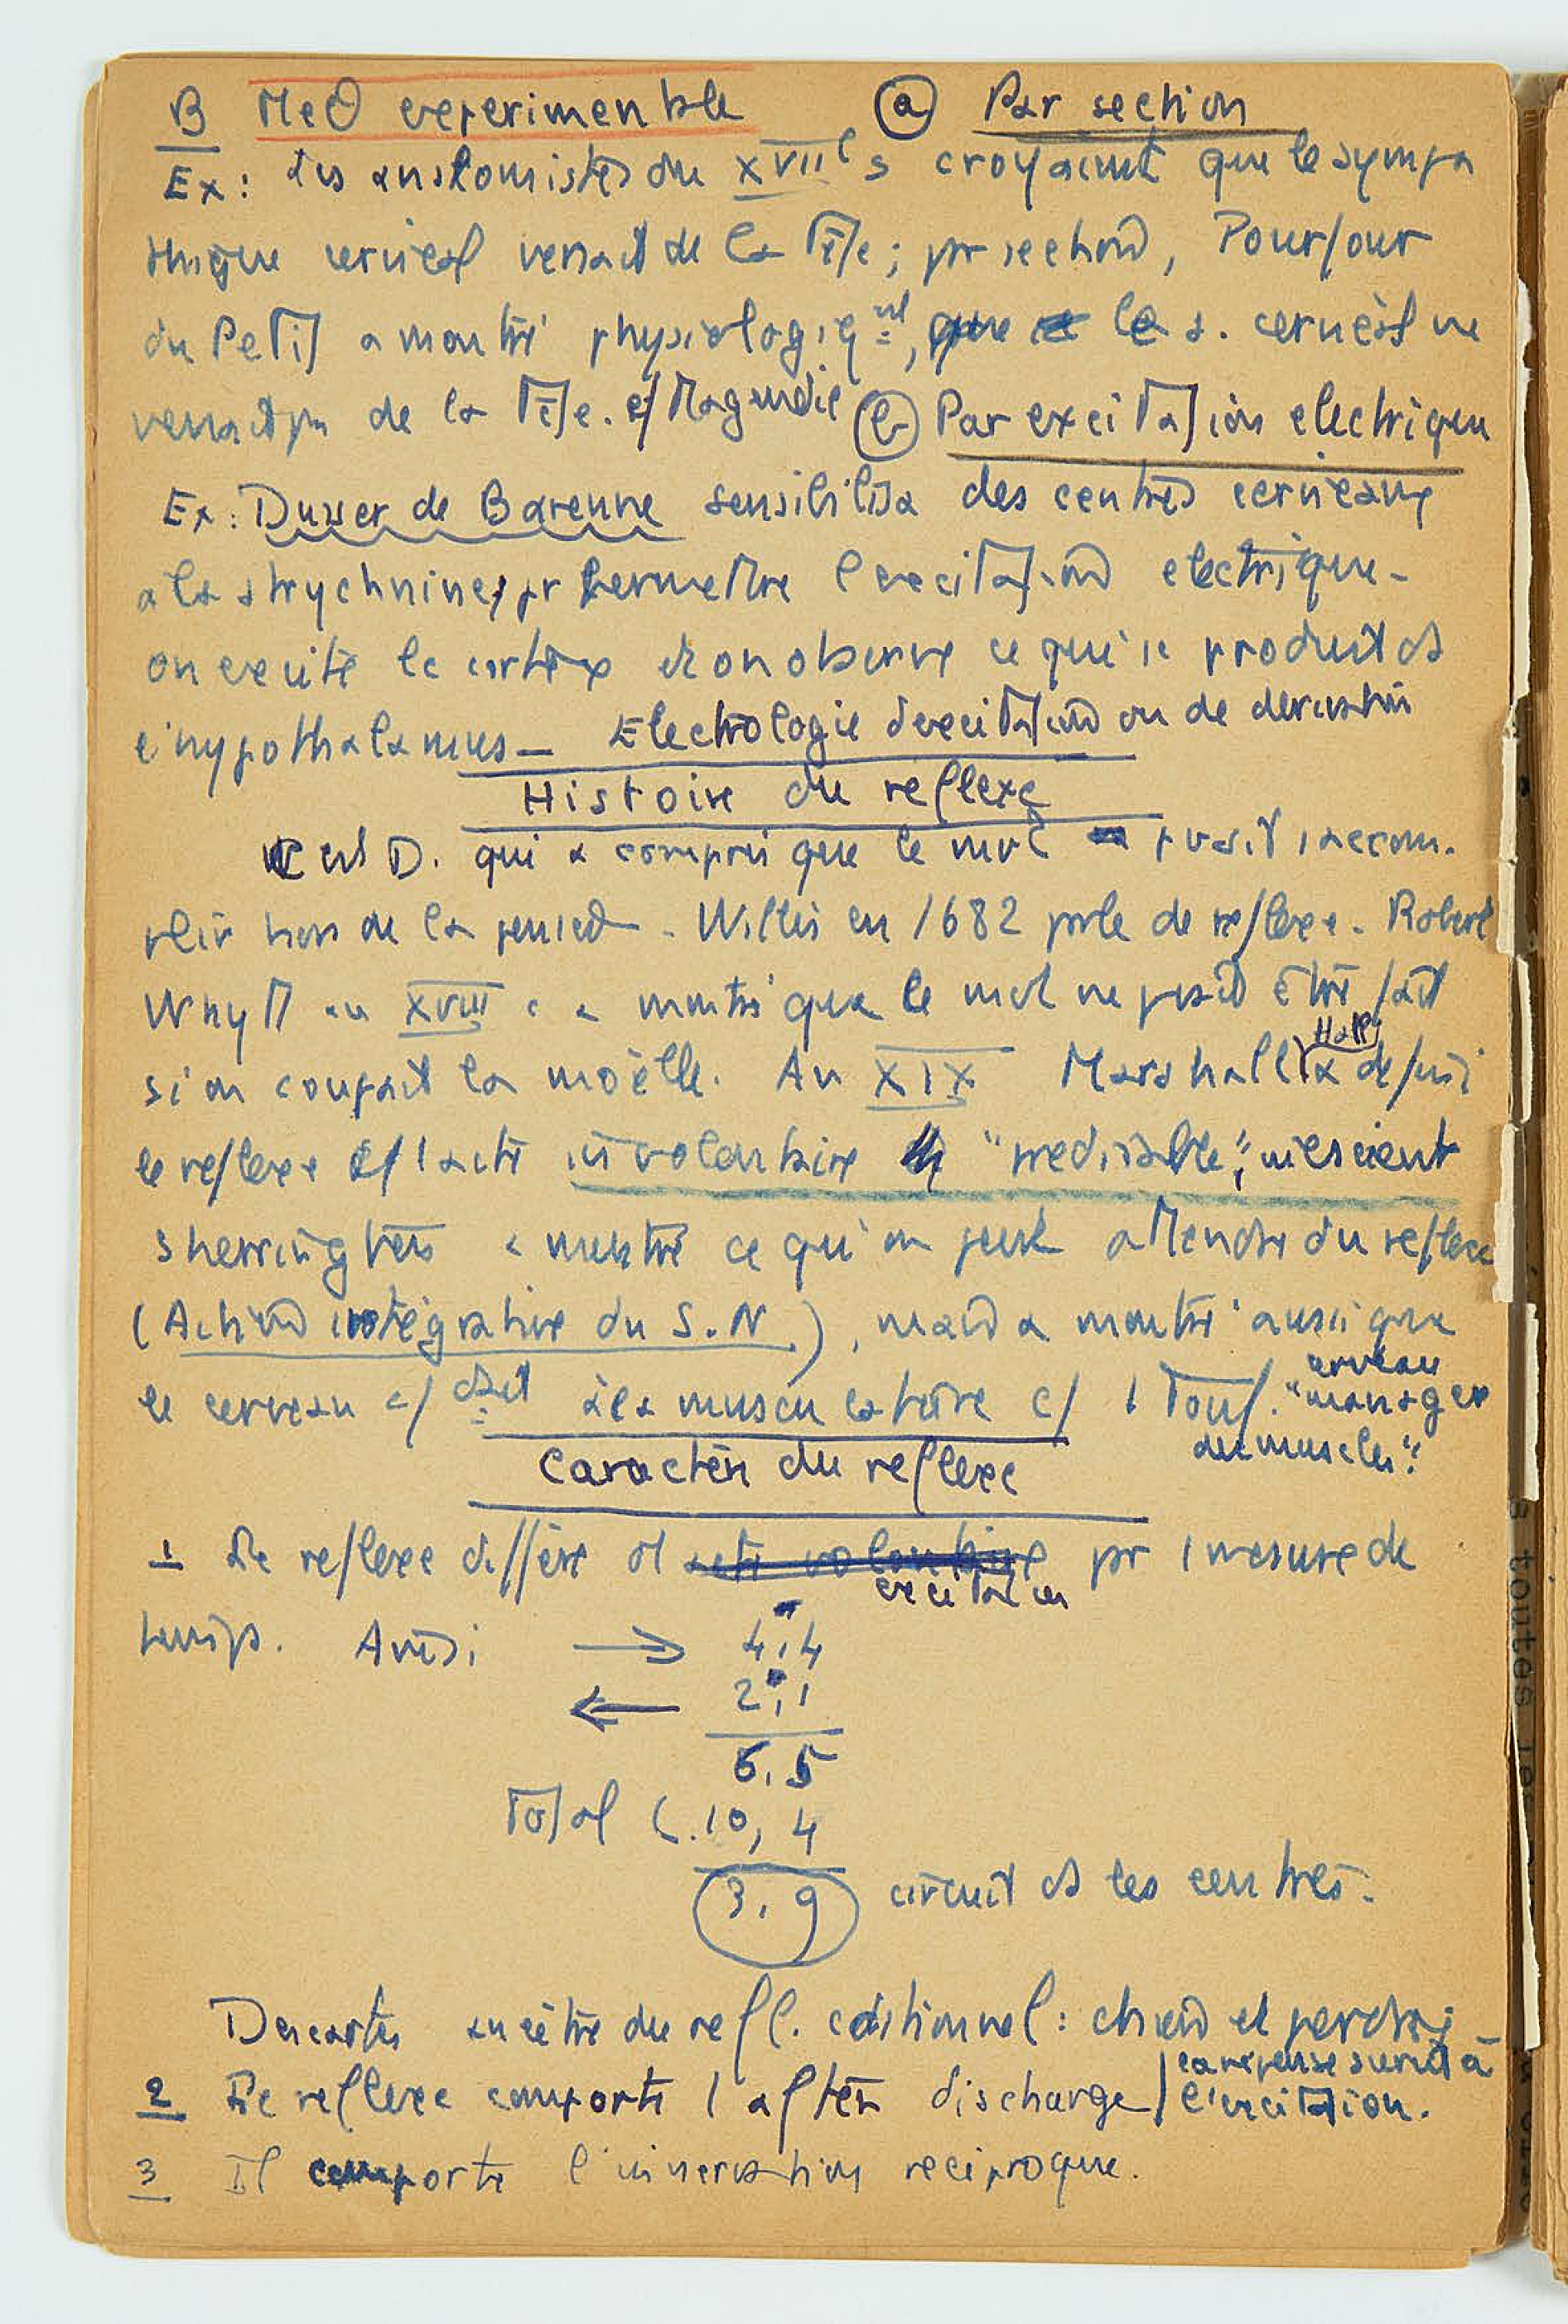 B MeO experimentale (a) Par section
Ex: Les anatomistes du XVIIe s croyaient que le sympa
thique cervical venait de la Tête; pr section, Pourfour
du Petit a montré physiologiqnt, que le s. cervical ne
venait pas de la Tête. cf Magendie (b) Par excitation electrique
Ex: Dusser de Barenne sensibilisa des centres cerveaux
a la strychnine, pr permettre l'excitation electrique -
on excite le cortex et on observe ce qui se produit ds
l'hypothalamus - Electrologie d'excitation ou de derivation
Histoire du reflexe
C'est D. qui a compris que le mvt pvait s'accom-
plir hors de la pensée - Willis en 1682 parle de reflexe - Robert
Whytt au XVIII e a montré que le mvt ne pvait être fait
si on coupait la moëlle. Au XIX Marshall Hall a defini
le reflexe c/ 1 acte involontaire "predisible", inconscient
Sherrington a montré ce qu'on peut attendre du reflexe
(Action intégrative du S.N.), mais a montré aussi que
le cerveau c/ à la musculature c/ 1 Tout. "cerveau
manager
des muscles".
Caractère du reflexe
1 Le reflexe diffère d excitation pr 1 mesure de
temps. Ainsi → 4,4
← 2,1
6,5
Total (.10,4
3,9 circuit ds les centres.
Descartes ancêtre du refl. cditionnel: chien et perdrix
2 Le reflexe comporte 1 after discharge | la réponse survit à
l'excitation.
3 Il comporte l'innervation reciproque.